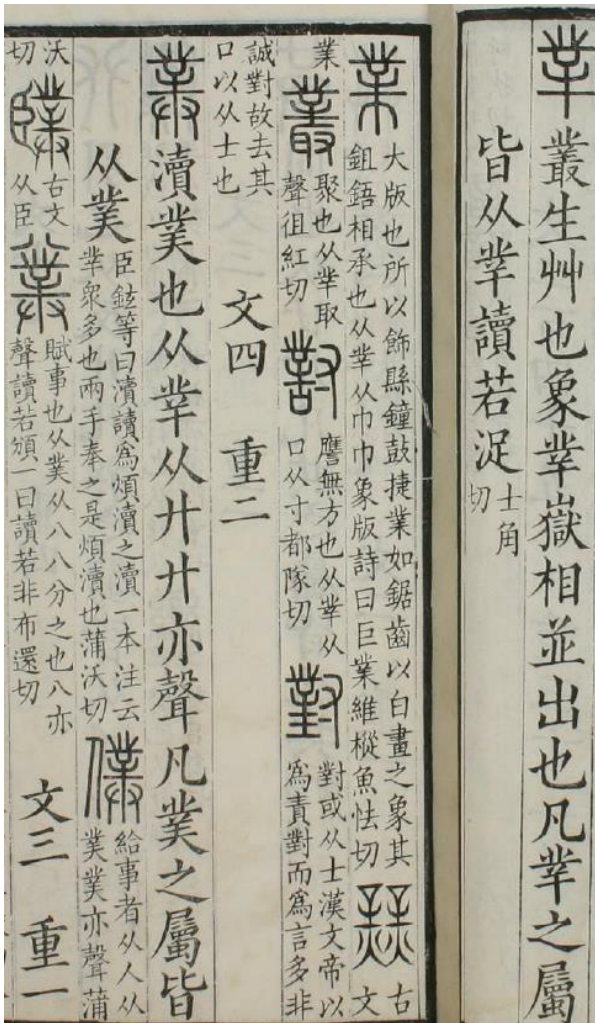 丵叢生艸也象丵嶽相並出也凡丵之屬
皆从丵讀若浞士角切
業大版也所以飾縣鐘鼓捷業如鋸齒以白畫之象其鉏鋙相承也从丵从巾巾象版詩曰巨業維樅魚怯切古文
業叢聚也从丵取聲徂紅切𡭊譍無方也从丵从口从寸都隊切對對或从士漢文帝以爲責對而爲言多非
誠對故去其口以从士也 文四 重二
菐瀆菐也从丵从廾廾亦聲凡菐之屬皆
从菐臣鉉等曰瀆讀爲煩瀆之瀆一本注云丵衆多也兩手奉之是煩瀆也蒲沃切僕給事者从人从菐菐亦聲蒲
沃切䑑古文从臣賦事也从菐从八八分之也八亦聲讀若頒一曰讀若非布還切 文三 重一